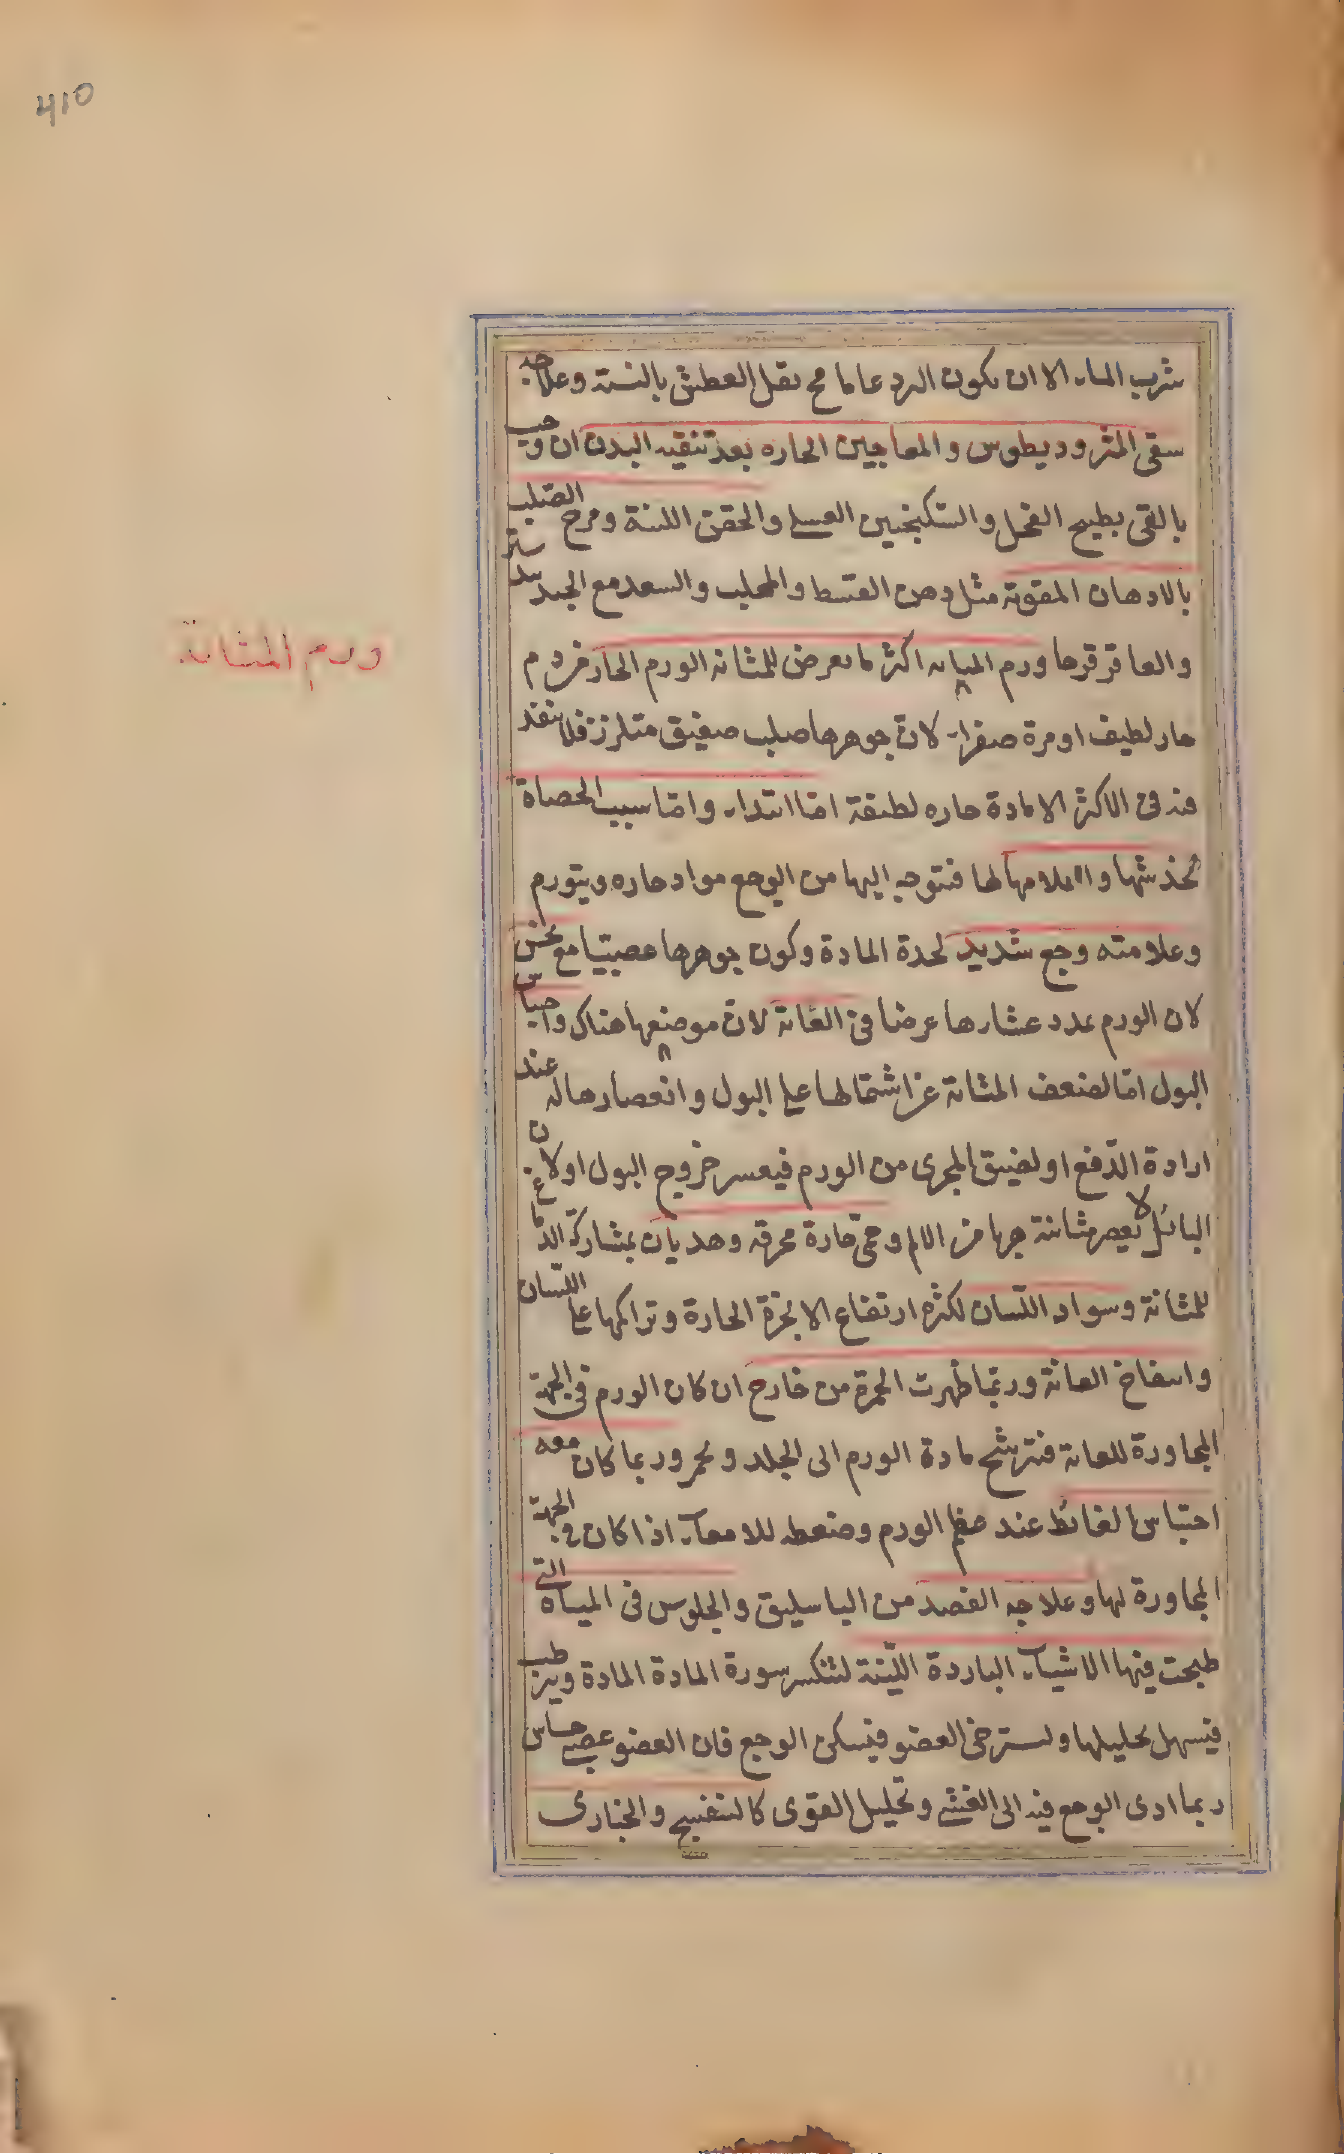 410
شرب الماء الا ان يكون البرد عاما مح يقل العطش بالنسبة وعلاجه
سقى المثروديطوس والمعاجين الحاره بعد تنقيه البدن ان وجب
بالقى بطبيخ الفجل والسكنجبين العسلى والحقن اللينة ومرخ الصلب
بالادهان المقوية مثل دهن القسط والمحلب والسعد مع الجندبيدستر
والعاقرقرحا ورم المثانه اكثر ما يعرض للمثانه الورم الحار من دم
ورم المثانة
حار لطيف او مرة صفراء لان جوهرها صلب صفيق متلزز فلا ينفذ
فيه فى الاكثر الا مادة حاره لطيفة اما ابتداء واما سبب الحصاة
بخدشها وايلامها لها فتتوجه اليها من الوجع مواد حاره ويتورم
وعلامته وجع شديد لحدة المادة وكون جوهرها عصبيا مع نخس
لان الورم يمدد غشاءها عرضا فى العانة لان موضعها هناك واحتباس
البول اما لضعف المثانة عن اشتمالها على البول وانعصارها له عند
ارادة الدفع او لضيق المجرى من الورم فيعسر خروج البول او لان
البائل لا يعصر مثانته هربا من الالم وحمى حارة محرقه وهذيان بمشاركة الدماغ
للمثانة وسواد اللسان لكثره ارتفاع الابخرة الحارة وتراكمها على اللسان
وانتفاخ العانة وربما ظهرت الحمرة من خارج ان كان الورم فى الجهة
المجاورة للعانة فتترشح مادة الورم الى الجلد ويحمر وربما كان معه
احتباس الغائط عند عظم الورم وضغطه للامعاء اذا كان فى الجهة
المجاورة لها وعلاجه الفصد من الباسليق والجلوس فى المياه التى
طبخت فيها الاشياء الباردة اللينة لتنكسر سورة المادة المادة ويترطب
فيسهل تحليلها وليسترخى العضو فيسكن الوجع فان العضو عصبى حساس
ربما ادى الوجع فيه الى الغشى وتحليل القوى كالبنفسج والخبازى